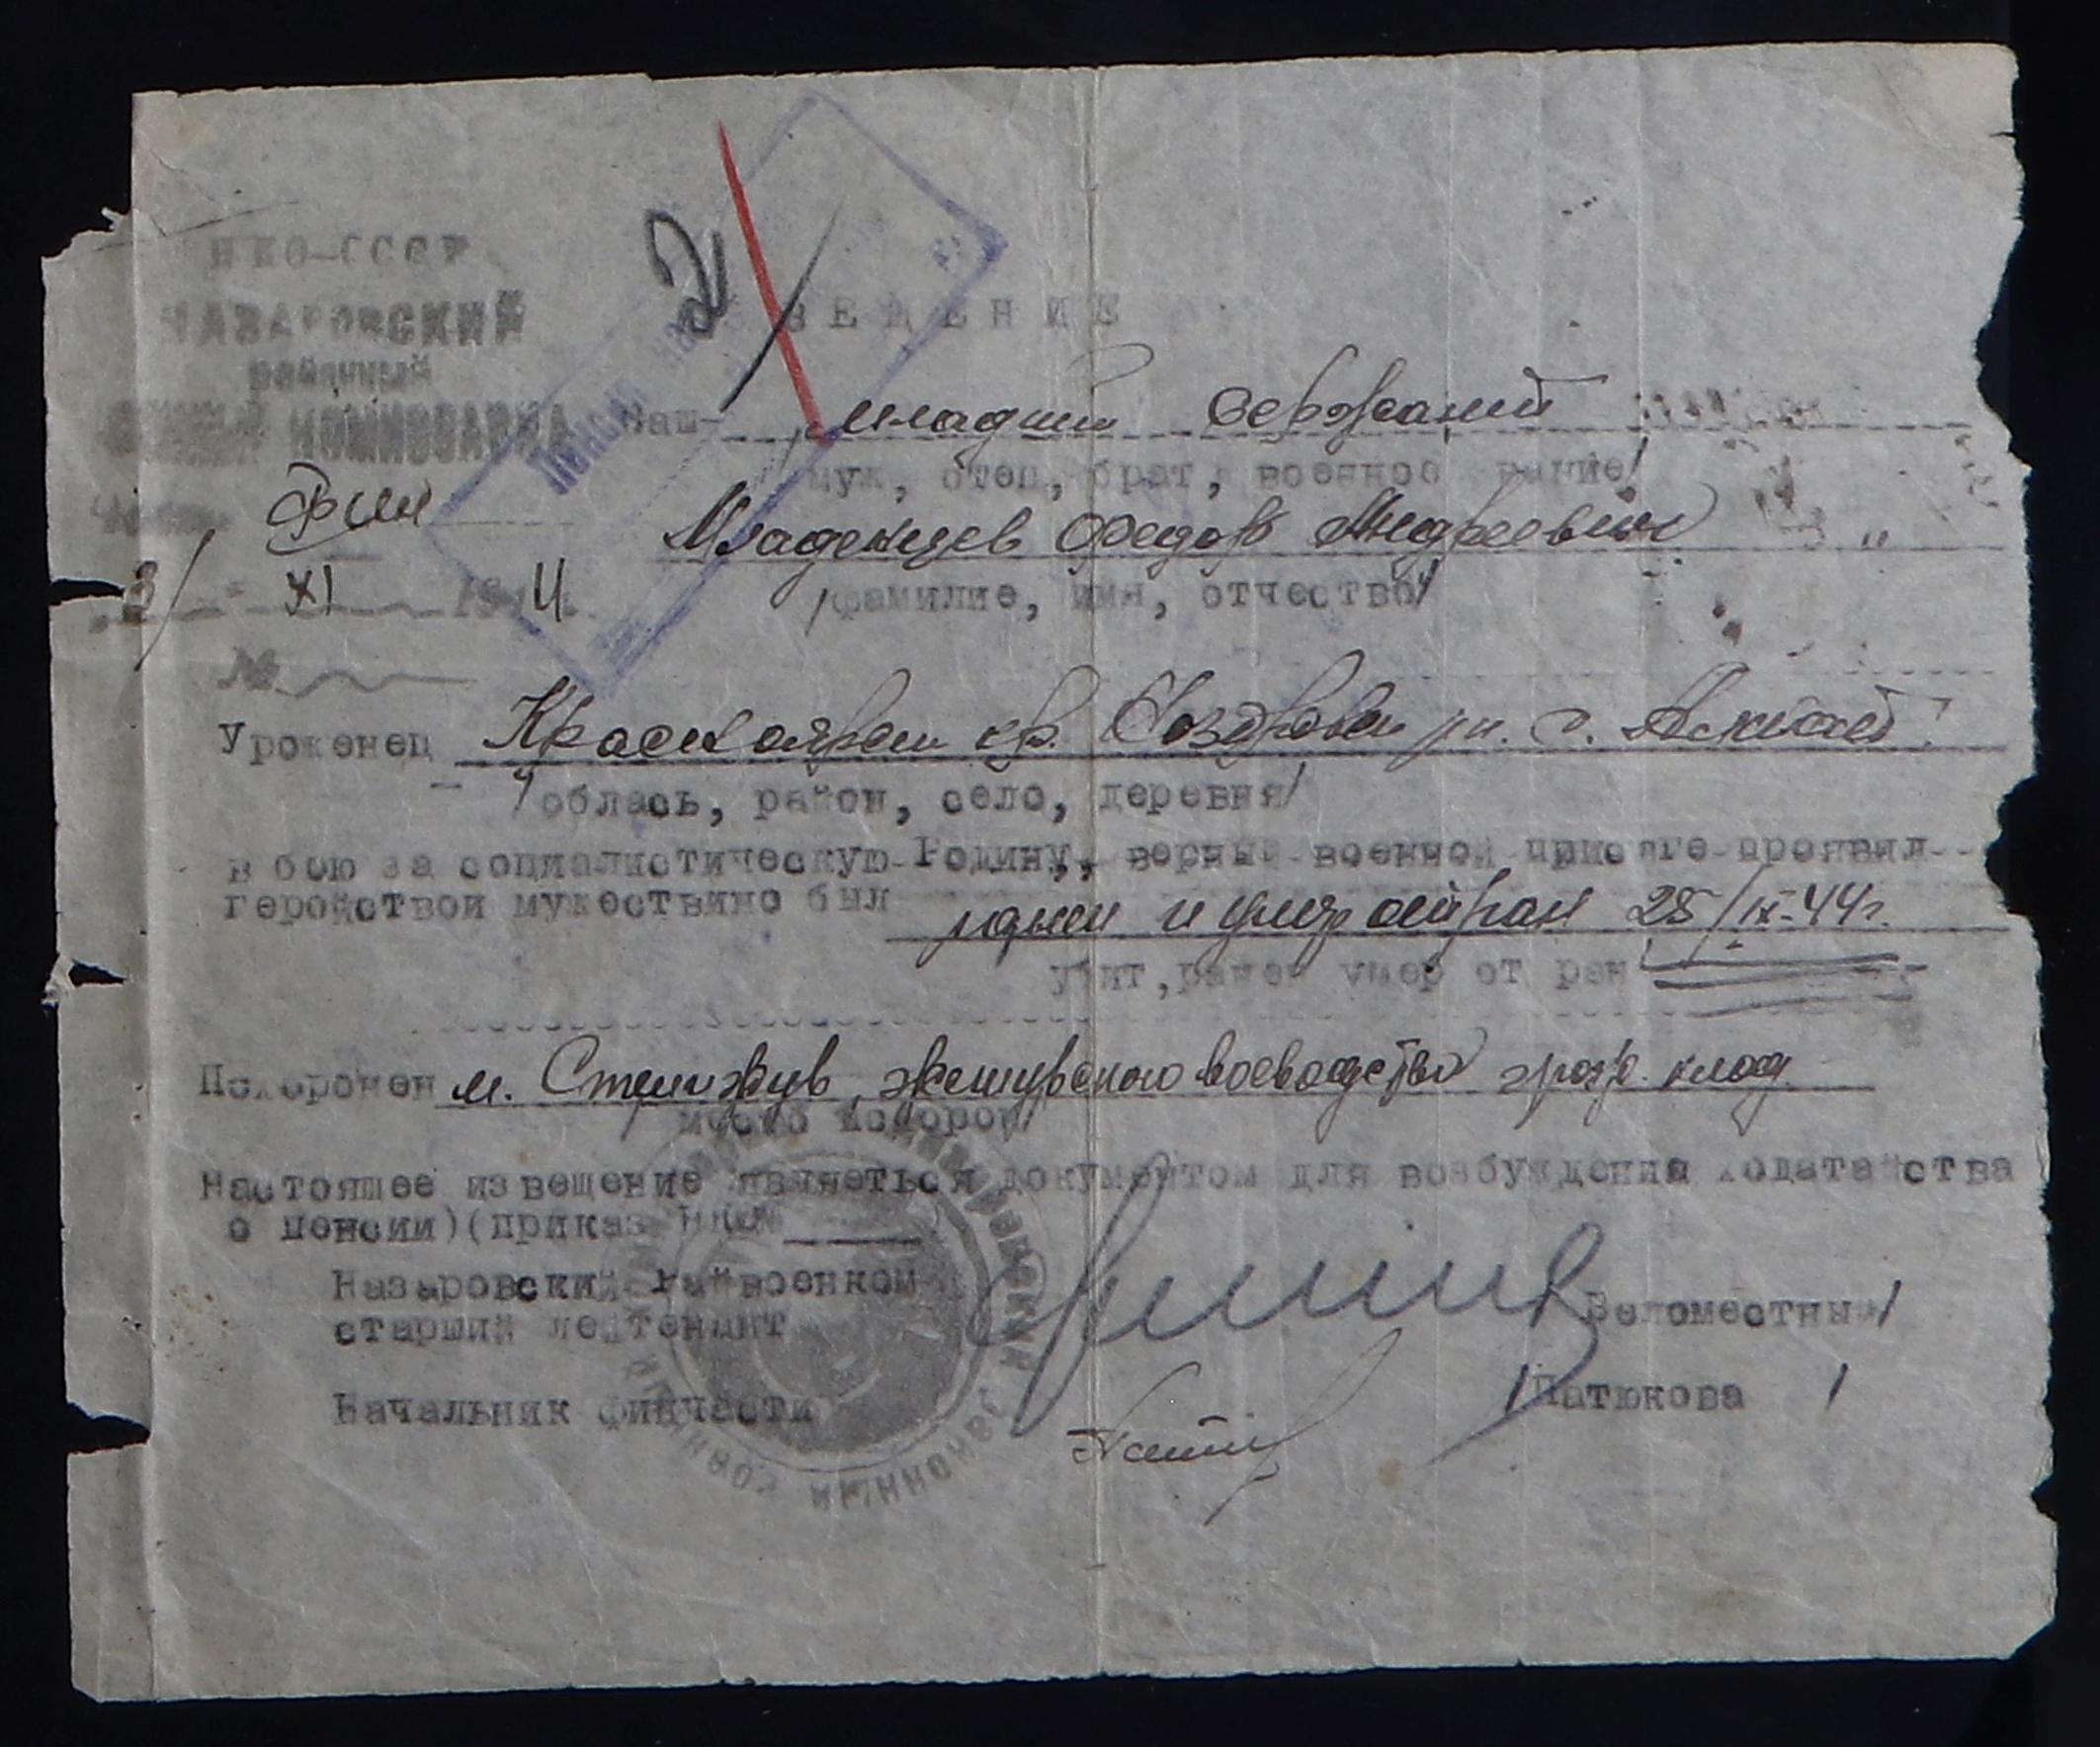 НКО-СССР
НАЗАРОВСКИЙ
районный
КОМИССАРИАТ
Часть Фин
3/ XI 1944
№
2
Пенсия
ВЕЩЕНИЕ
Ваш младший сержант
муж, отец, брат, военное звание/
Младенцев Федор Андреевич
/фамилие, имя, отчество/
Уроженец Красноярск кр. р-н. с.
/облась, район, село, деревня/
в бою за социалистическую Родину, верный военной присяге проявил
геройствои мужествино был ранен и умер от ран 28/IX-44г.
убит, ранен умер от ран
Похоронен м. воеводства граж. клад.
место похорон/
Настоящее извещение являеться документом для возбуждения ходатайства
о пенсии)(приказ НКО №
Назаровский райвоенком
старший лейтенант Беломестный/
Начальник финчасти /Патюкова /